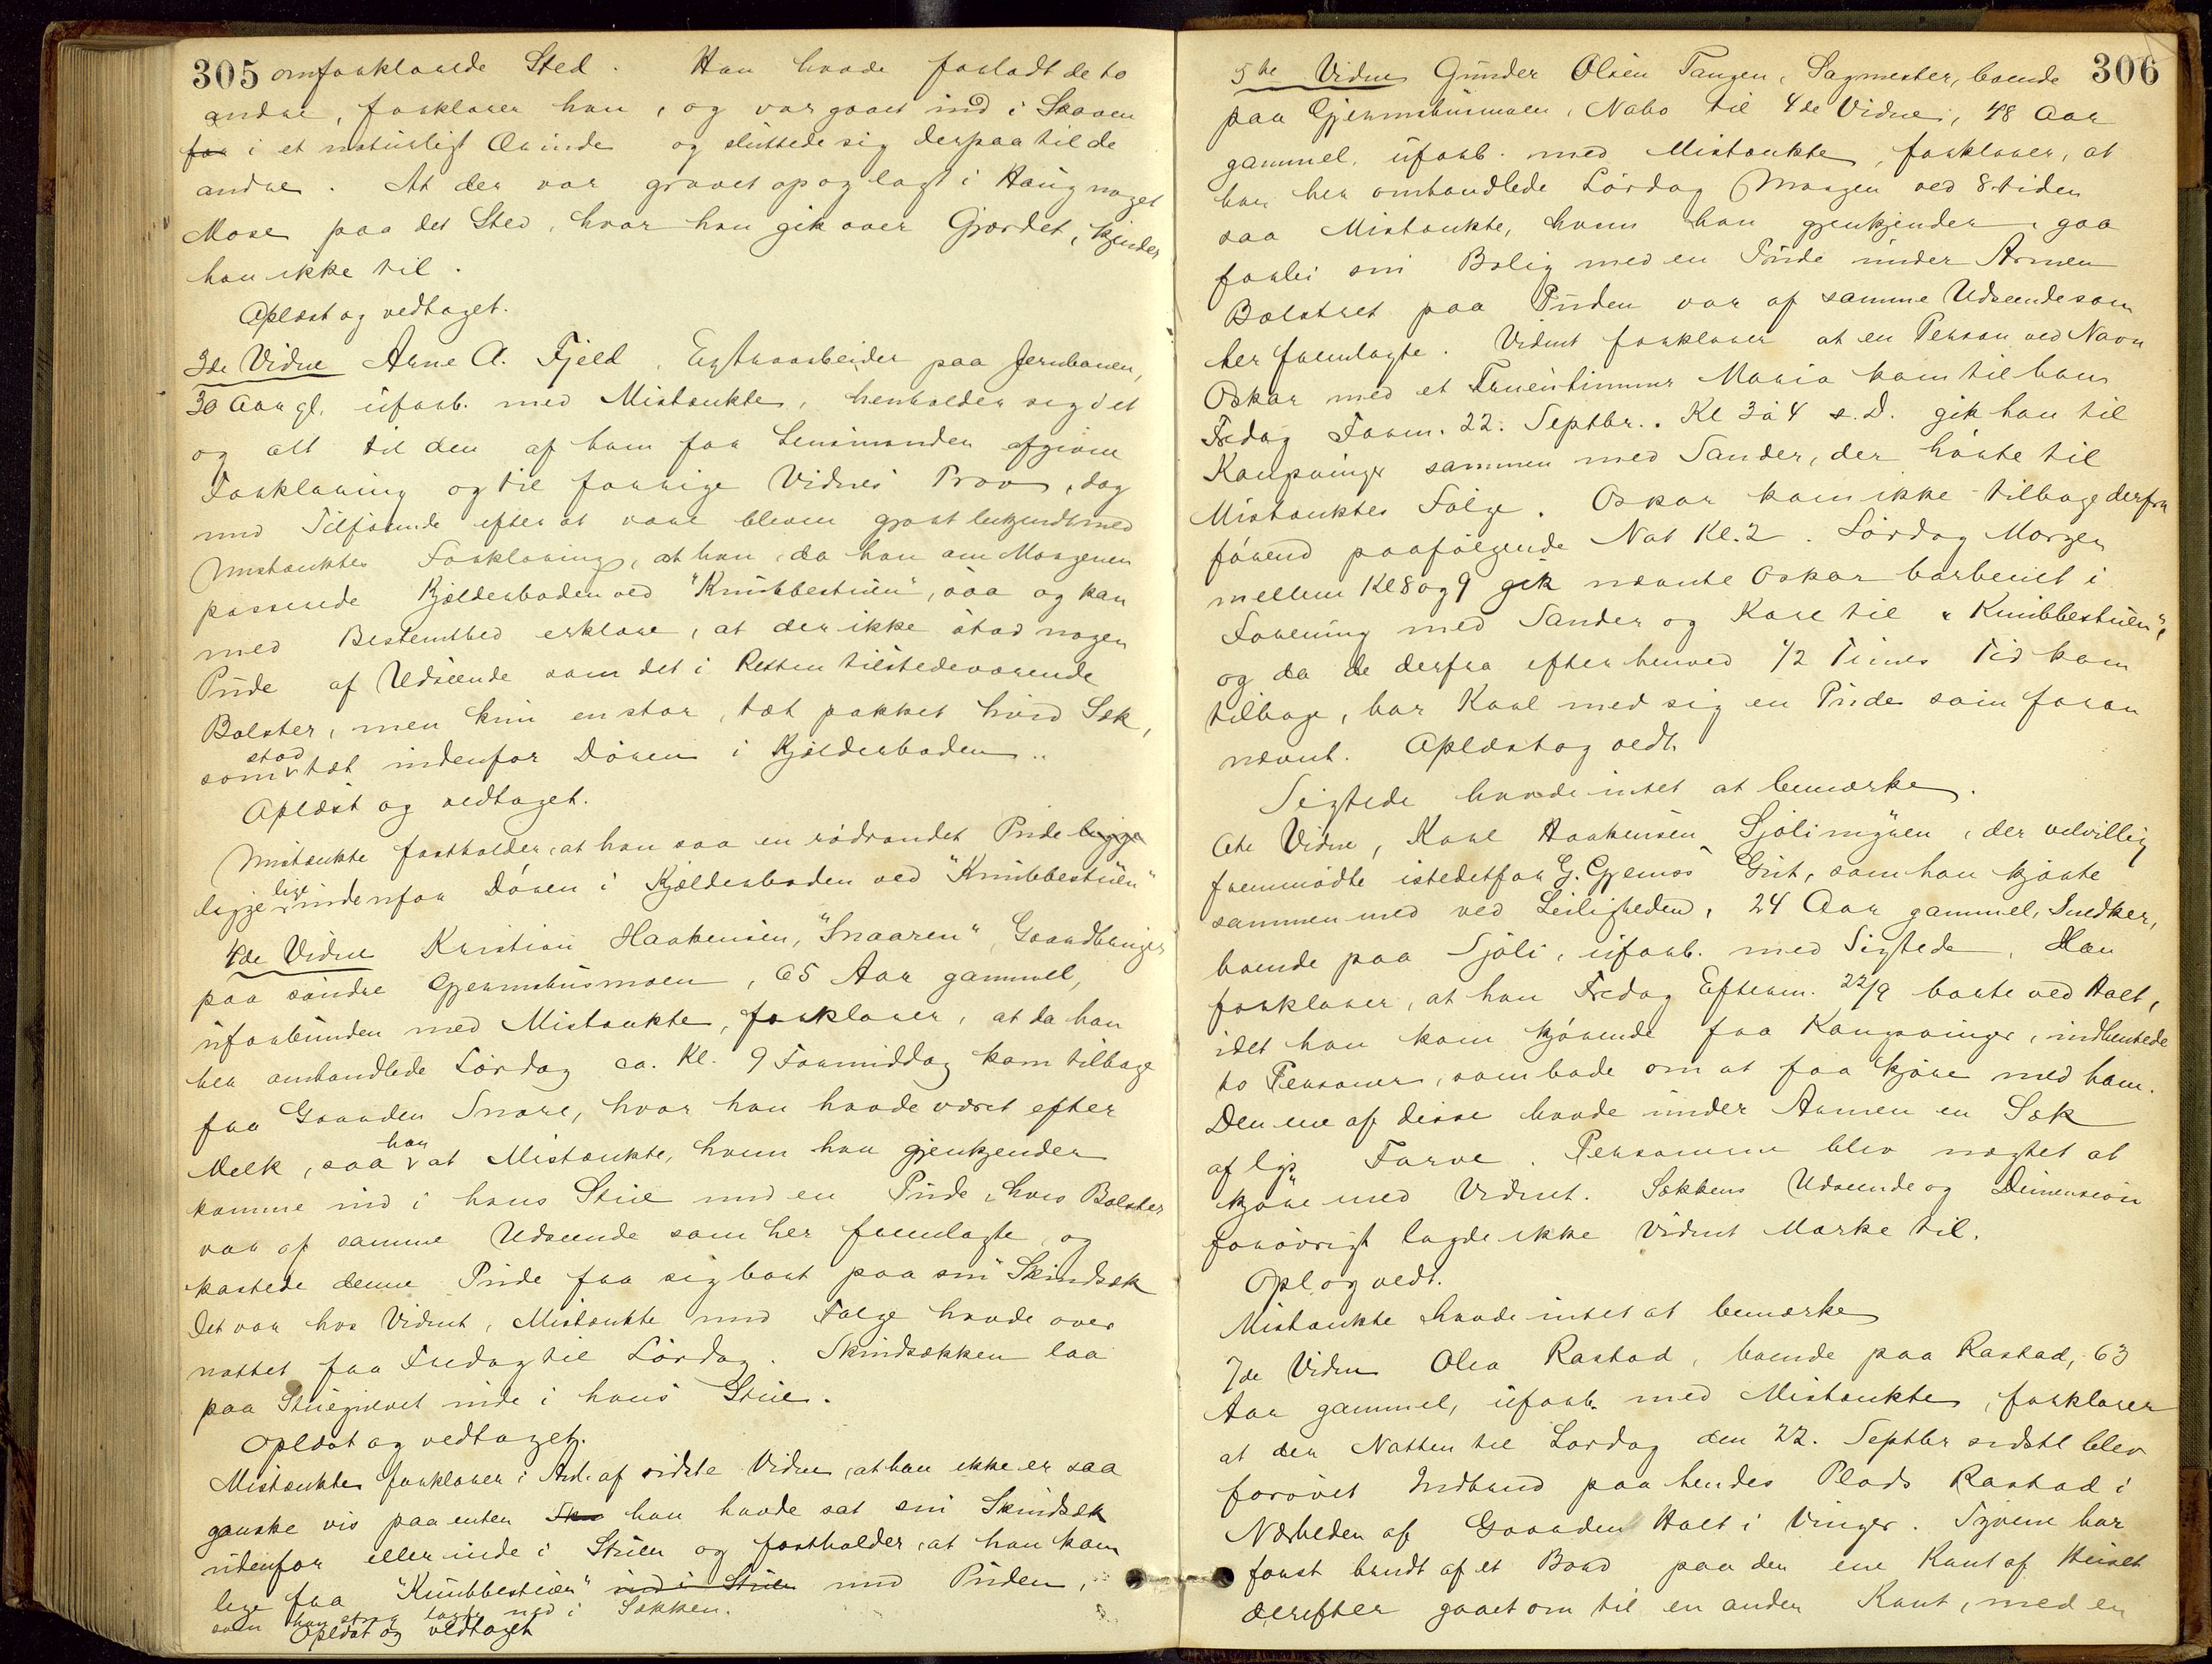 305 omforklarede Sted. Han havde forladt de to
andre, forklarer han, og var gaaet ind i Skoven
for i et naturligt Ærinde og sluttede sig derpaa til de
andre. At der var gravet op og lagt i Haug noget
Mose paa det Sted, hvor han gik over Gjærdet, kjender
han ikke til.
Oplæst og vedtaget.
3de Vidne Arne A. Fjeld, Extraarbeider paa Jernbanen,
30 Aar gl. uforb. med Mistænkte, henholder sig i et
og alt til den af ham for Lensmanden afgivne
Forklaring og til forrige Vidnes Prov, dog
med Tilføiende efter at være bleven gjort bekjendt med
Mistænktes Forklaring, at han, da han om Morgenen
passerede Kjælderboden ved "Knubbestuen", saa og kan
med Bestemthed erklære, at der ikke stod nogen
Pude af Udseende som det i Retten tilstedeværende
Bolster, men kun en stor, tæt pakket hvid Sæk,
som stod tæt indenfor Døren i Kjælderboden.
Oplæst og vedtaget.
Mistænkte fastholder, at han saa en rødrandet Pude ligge
ligge lige indenfor Døren i Kjælderboden ved "Knubbestuen"
4de Vidne Kristian Haakensen, "Snaaren", Gaardbruger
paa søndre Gjermshusmoen, 65 Aar gammel,
uforbunden med Mistænkte, forklarer, at da han
her omhandlede Lørdag ca. Kl. 9 Formiddag kom tilbage
fra Gaarden Snare, hvor han havde været efter
Melk, saa han at Mistænkte, hvem han gjenkjender
komme ind i hans Stue med en Pude, hvis Bolster
var af samme Udseende som her fremlagte og
kastede denne Pude fra sig bort paa sin Skindsæk
Det var hos Vidnet, Mistænkte med Følge havde over
nattet fra Fredag til Lørdag. Skindsækken laa
paa Stuegulvet inde i hans Stue.
Oplæst og vedtaget.
Mistænkte forklarer i Anl. af sidste Vidne, at han ikke er saa
ganske vis paa enten han havde sat sin Skindsæk
udenfor eller inde i Stuen og fastholder, at han kom
lige fra "Knubbestuen" ind i Stuen med Puden,
som han strax lagde ned i Sækken.
Oplæst og vedtaget
306
5te Vidne Gunder Olsen Tangen, Sagmester, boende
paa Gjermshusmoen, Nabo til 4de Vidne, 48 Aar
gammel, uforb. med Mistænkte, forklarer, at
han her omhandlede Lørdag Morgen ved 8-tiden
saa Mistænkte, hvem han gjenkjender, gaa
forbi sin Bolig med en Pude under Armen
Bolstret paa Puden var af samme Udseende som
her fremlagte. Vidnet forklarer at en Person ved Navn
Oskar med et Fruentimmer Maria kom til ham
Fredag Form. 22. Septbr. Kl 3 à 4 s.D. gik han til
Kongsvinger sammen med Sander, der hørte til
Mistænktes Følge. Oskar kom ikke tilbage derfra
førend paafølgende Nat Kl. 2. Lørdag Morgen
mellem Kl 8 og 9 gik nævnte Oskar barbenet i
Forening med Sander og Karl til "Knubbestuen",
og da de derfra efter henved 1/2 Times Tid kom
tilbage, bar Karl med sig en Pude som foran
nævnt. Oplæst og vedt.
Sigtede havde intet at bemærke.
6te Vidne, Karl Haakensen Sjølimyren, der velvillig
fremmødte istedetfor G. Gjemos Gut, som han kjørte
sammen med ved Leiligheden, 24 Aar gammel, Snedker,
boende paa Sjøli, uforb. med Sigtede. Han
forklarer, at han Fredag Efterm. 22/9 borte ved Holt,
idet han kom kjørende fra Kongsvinger, indhentede
to Personer, som bade om at faa kjøre med ham.
Den ene af disse havde under Armen en Sæk
af lys Farve. Personerne blev nægtet at
kjøre med Vidnet. Sækkens Udseende og Dimension
forøvrigt lagde ikke Vidnet Mærke til.
Opl. og vedt.
Mistænkte havde intet at bemærke
7de Vidne Olea Rastad, boende paa Rastad, 63
Aar gammel, uforb. med Mistænkte, forklarer
at der Natten til Lørdag den 22. Septbr sidstl blev
forøvet Indbrud paa hendes Plads Rastad i
Nærheden af Gaarden Holt i Vinger. Tyvene har
først brudt af et Bord paa den ene Kant af Huset
derefter gaaet om til en anden Kant, med en